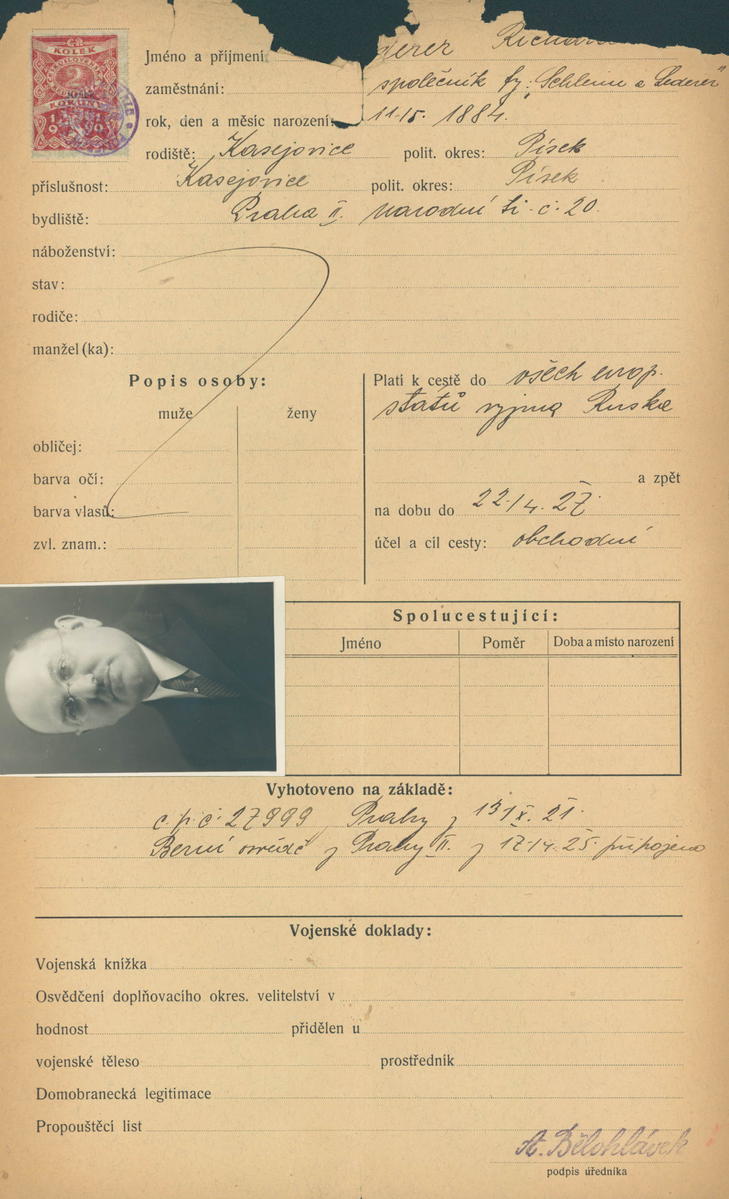 Č.R.
KOLEK
2
KORUNY
1919
Jméno a příjmení: ederer Richard
zaměstnání: společník fy: „Schlein a Lederer"
rok, den a měsíc narození: 11./5. 1884.
rodiště: Kasejovice polit. okres: Písek
příslušnost: Kasejovice polit. okres: Písek
bydliště: Praha II. Národní tř. č. 20.
náboženství:
stav:
rodiče:
manžel (ka):
Popis osoby:
muže ženy
obličej:
barva očí:
barva vlasů:
zvl. znam.:
Platí k cestě do všech evrop.
států vyjma Ruska
a zpět
na dobu do 22./4. 27.
účel a cíl cesty: obchodní
Spolucestující:
Jméno Poměr Doba a místo narození
Vyhotoveno na základě:
c. p. č. 27999 Prahy z 13/IX. 21.
Berní osvědč z Prahy II. z 17./4. 25. připojeno
Vojenské doklady:
Vojenská knížka
Osvědčení doplňovacího okres. velitelství v
hodnost přidělen u
vojenské těleso prostředník
Domobranecká legitimace
Propouštěcí list
A. Bělohlávek
podpis úředníka